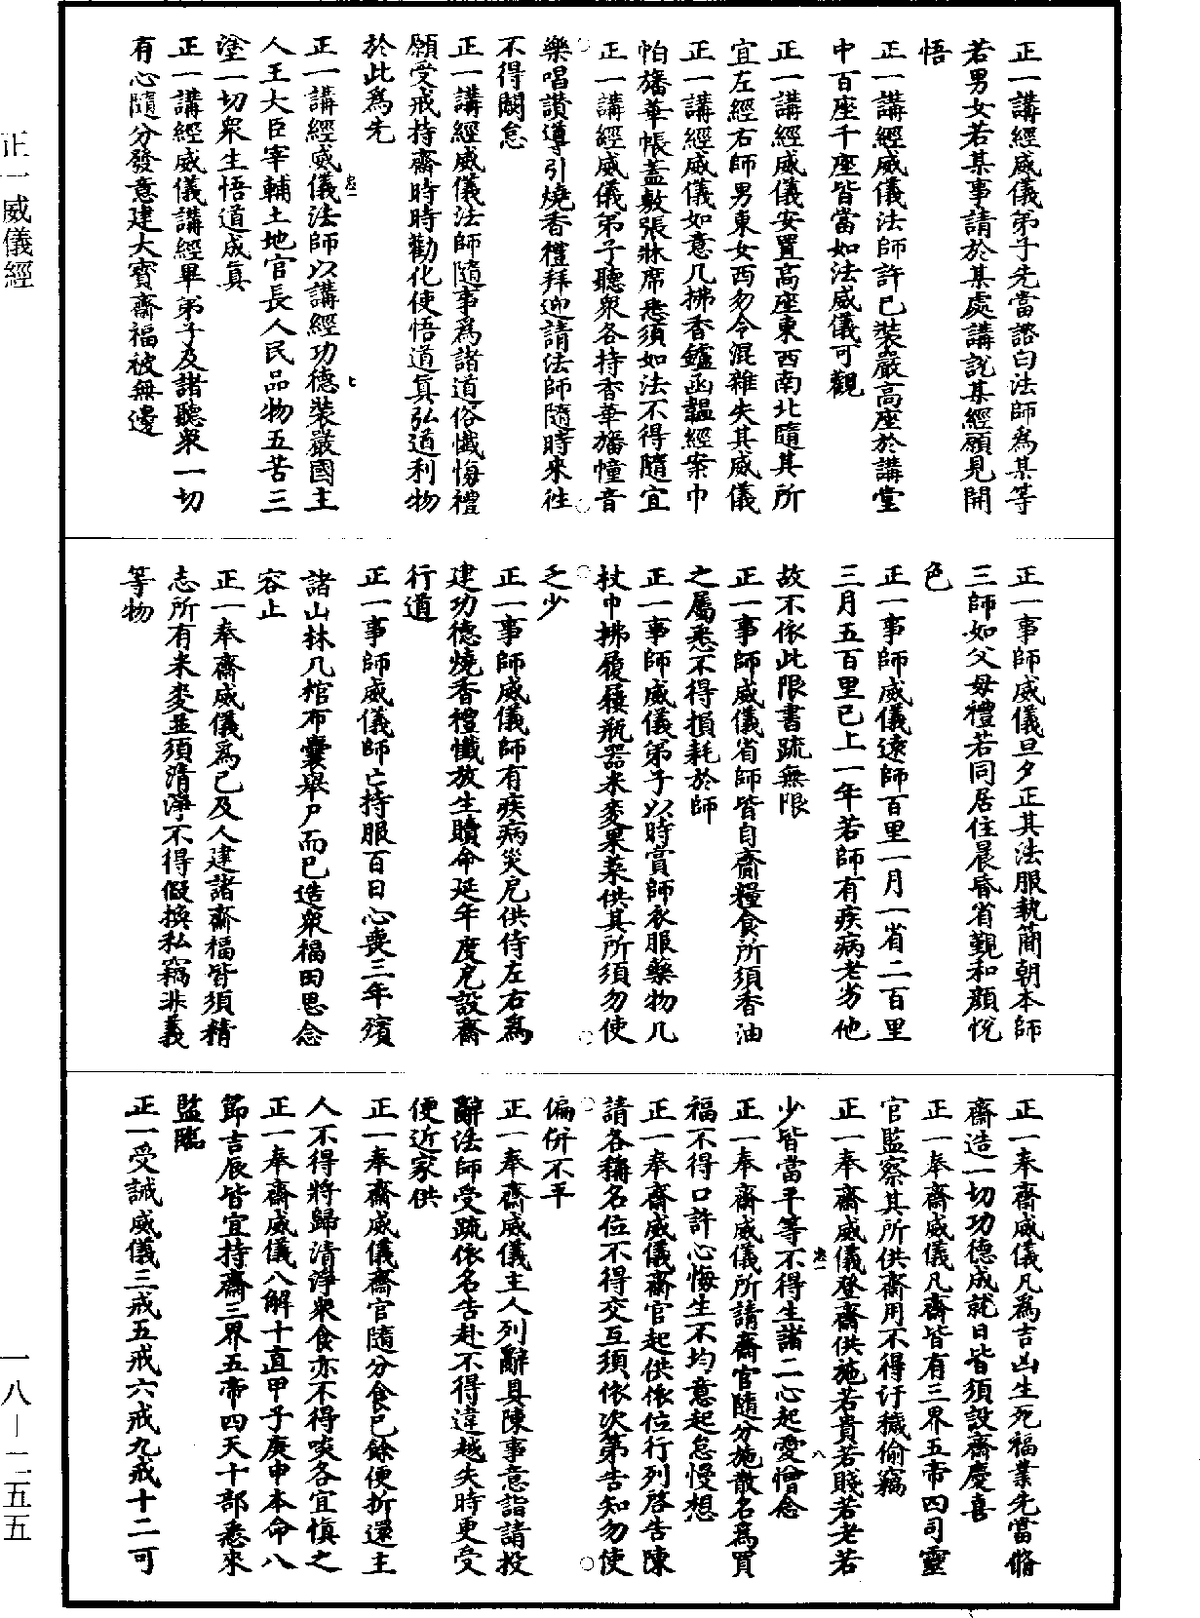 正一講經威儀弟子先當諮白法師爲某等
若男女若某事請於某處講說某經願見開
悟
正一講經威儀法師許已裝嚴高座於講堂
中百座千座皆當如法威儀可觀
正一講經威儀安置高座東西南北隨其所
宜左經右師男東女西勿令混雜失其威儀
正一講經威儀如意几拂香鑪函韞經案巾
帕旛華帳蓋敷張牀席悉須如法不得隨宜
正一講經威儀弟子聽衆各持香華旛幢音
樂唱讚導引燒香禮拜迎請法師隨時來往
不得闕怠
正一講經威儀法師隨事爲諸道俗懺悔禮
願受戒持齋時時勸化使悟道眞弘通利物
於此爲先
正一講經威儀法師以講經功德裝嚴國主
人王大臣宰輔土地官長人民品物五苦三
塗一切衆生悟道成眞
正一講經威儀講經畢弟子及諸聽衆一切
有心隨分發意建大寶齋福被無邊
正一事師威儀旦夕正其法服執簡朝本師
三師如父母禮若同居住晨昏省覲和顏悅
色
正一事師威儀遠師百里一月一省二百里
三月五百里已上一年若師有疾病老劣他
故不依此限書疏無限
正一事師威儀省師皆自齎糧食所須香油
之屬悉不得損耗於師
正一事師威儀弟子以時賞師衣服藥物几
杖巾拂履屐瓶器米麥果菜供其所須勿使
乏少
正一事師威儀師有疾病災厄供侍左右爲
建功德燒香禮懺放生贖命延年度厄設齋
行道
正一事師威儀師亡持服百日心喪三年殯
諸山林几棺布囊舉尸而已造衆福田思念
容止
正一奉齋威儀爲己及人建諸齋福皆須精
志所有米麥並須清淨不得假換私竊非義
等物
正一奉齋威儀凡爲吉凶生死福業先當脩
齋造一切功德成就日皆須設齋慶喜
正一奉齋威儀凡齋皆有三界五帝四司靈
官監察其所供齋用不得汙穢偷竊
正一奉齋威儀登齋供施若貴若賤若老若
少皆當平等不得生諸二心起愛憎念
正一奉齋威儀所請齋官隨分施散名爲買
福不得口許心悔生不均意起怠慢想
正一奉齋威儀齋官起供依位行列啓告陳
請各稱名位不得交互須依次第告知勿使
偏併不平
正一奉齋威儀主人列辭具陳事意詣請投
辭法師受疏依名告赴不得違越失時更受
便近家供
正一奉齋威儀齋官隨分食已餘便折還主
人不得將歸清淨衆食亦不得啖各宜愼之
正一奉齋威儀八解十直甲子庚申本命八
節吉辰皆宜持齋三界五帝四天十部悉來
監臨
正一受誡威儀三戒五戒六戒九戒十二可
忠一
七
忠一
八
正一威儀經
一八—二五五